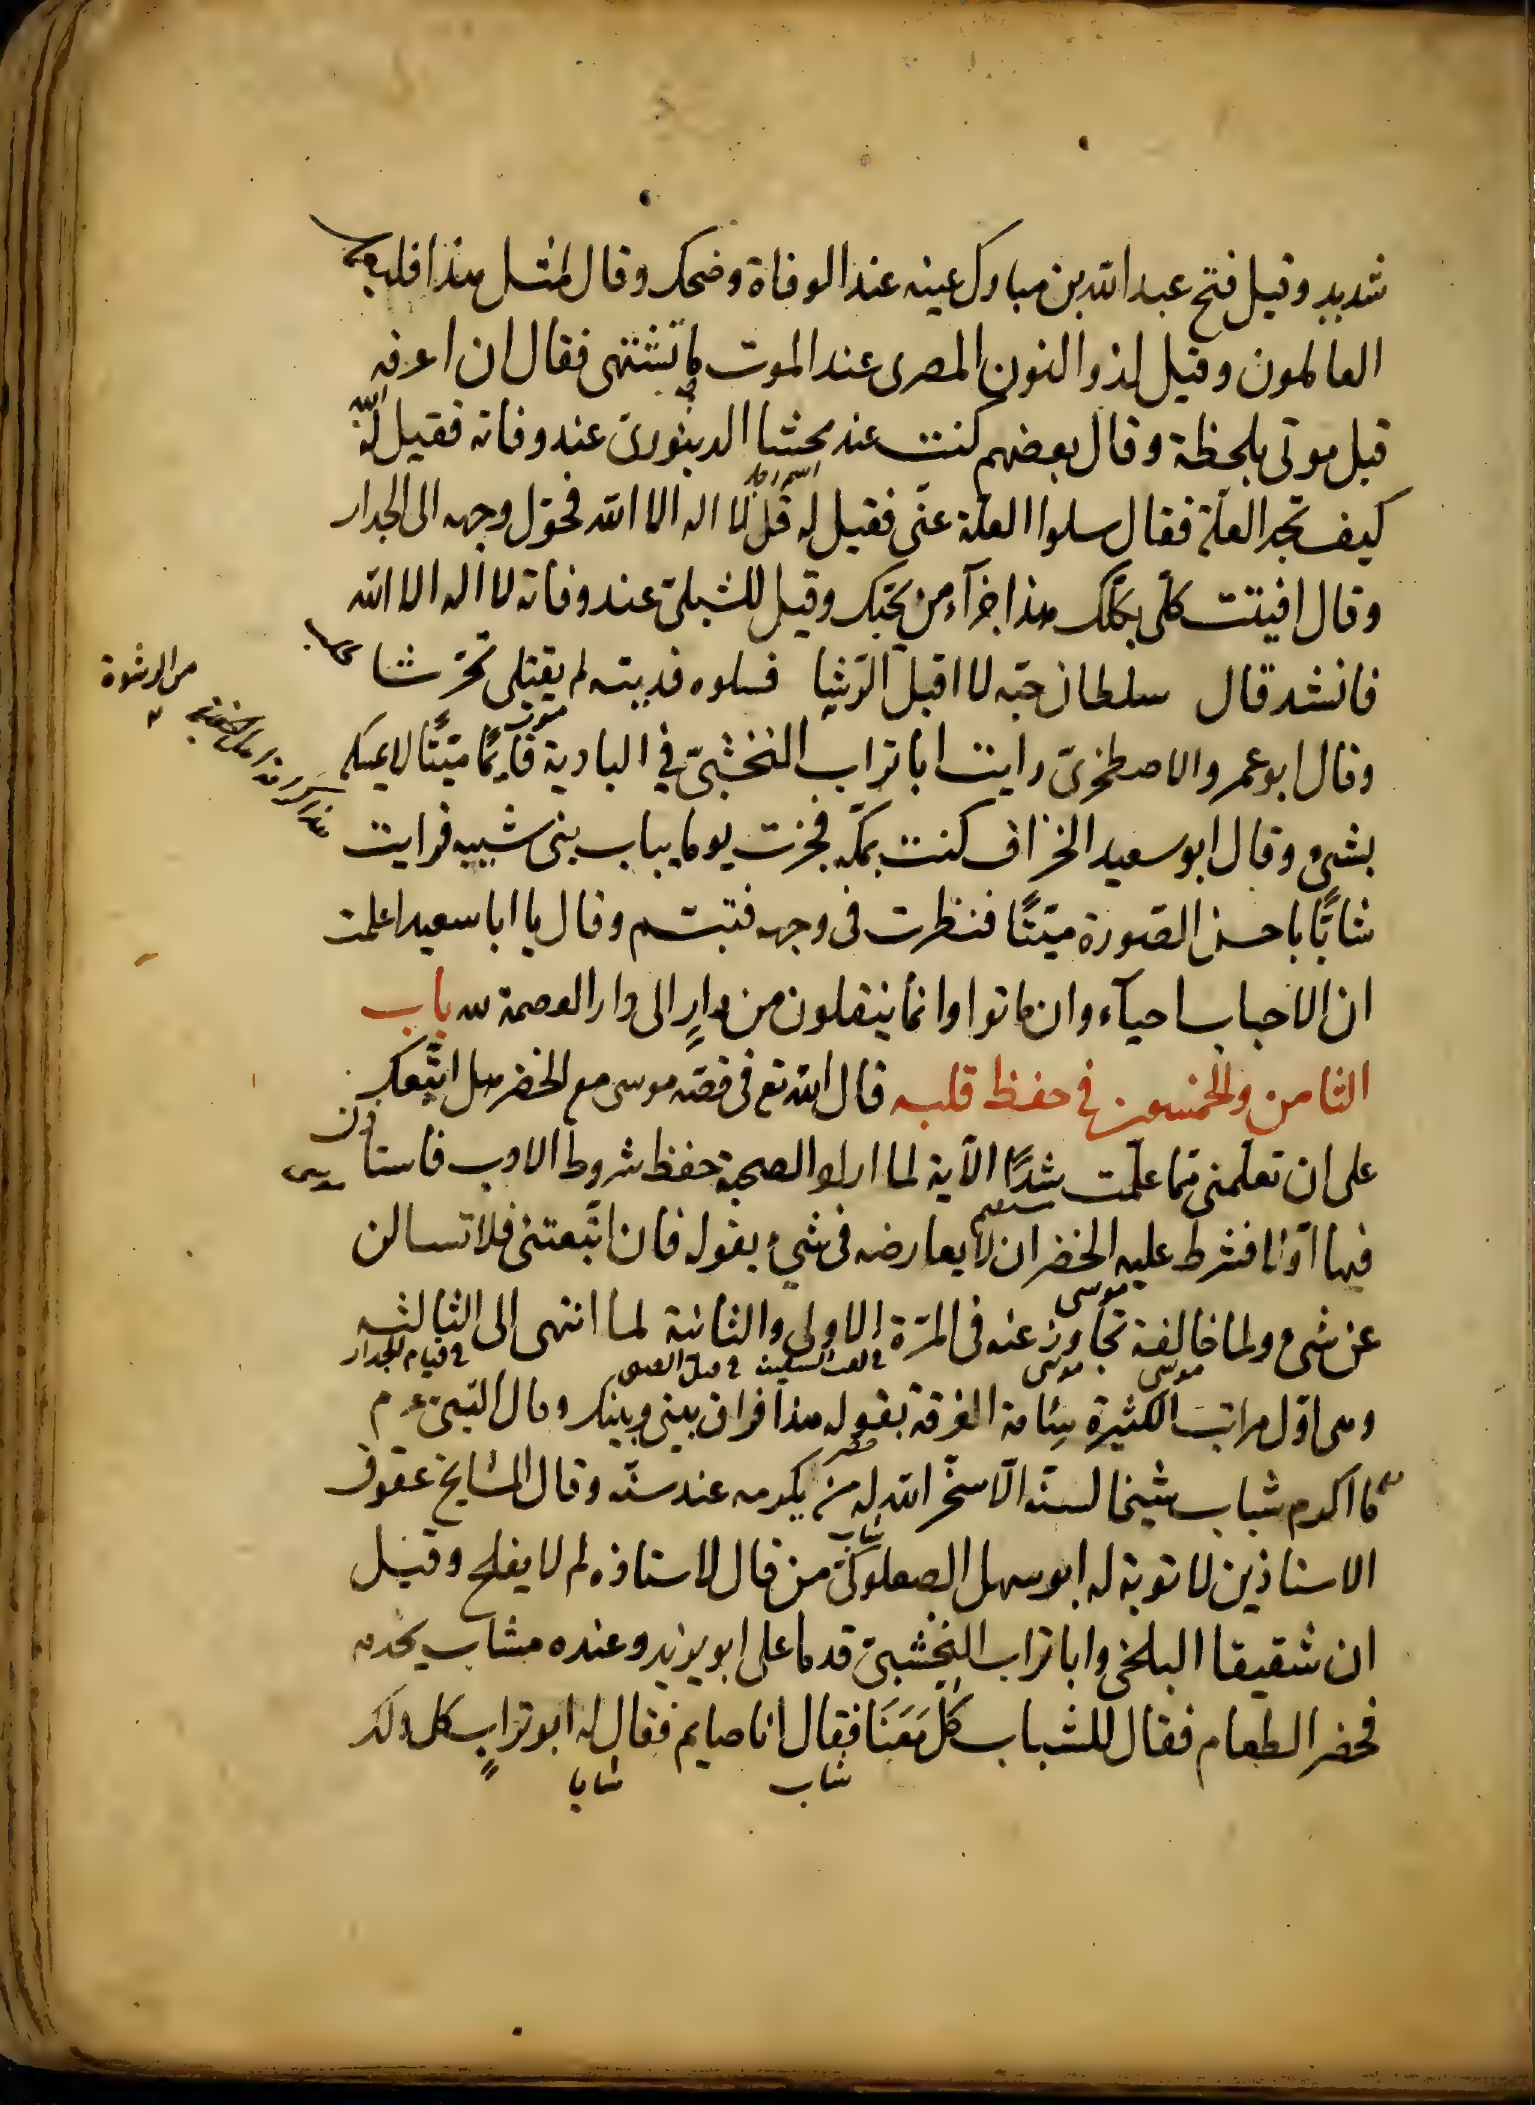 شديد وقيل فتح عبد الله بن مبارك عينه عند الوفاة وضحك وقال لمثل هذا فليعمل
العالمون وقيل لذو النون المصرى عند الموت ما تشتهى فقال ان اعرفه
قبل موتى بلحظة وقال بعضهم كنت عند محشا الدينورى عند وفاته فقيل له
كيف تجد العلة فقال سلوا العلة عنّى فقيل له قل لا اله الا الله فحوّل وجهه الى الجدار
وقال افنيت كلّى بكلّك هذا جزآء من يحبّك وقيل للشبلىّ عند وفاته لا اله الا الله
فانشد قال سلطان حبّه لا اقبل الرّشا فسلوه فديته لم بقتلى تحرّشا
من الرشوة
وقال ابو عمرو الاصطخرىّ رايت ابا تراب النخشبىّ فى البادية قايمًا ميّتًا لا يمسكه
بشىء وقال ابو سعيد الخزاف كنت بمكّه فجزت يوما بباب بنى شيبه فرايت
شابًّا باحسن الصّورة ميّتًا فنظرت فى وجهه فتبسّم وقال يا ابا سعيد اعلمت
ان الاحباب احيآء وان ماتوا وانما ينقلون من دارٍ الى دار العصمة باب
الثامن والخمسون فى حفظ قلبه قال الله تع فى قصّه موسى مع الخضر هل اتّبعك
على ان تعلّمنى ممّا علّمت رشدًا الآية لما اراد الصحبة حفظ شروط الادب فاستأذن
فيها اوّلا فشرط عليه الخضر ان لا يعارضه فى شىء بقوله فان اتّبعتنى فلا تسالن
موسى
عن شىء ولما خالفه تجاوز عنه فى المرّة الاولى والثانية لما انتهى الى الثالثه
موسى موسى فى قيام الجدار
وهى اوّل مراتب الكثيرة سامه الفرقة بقوله هذا فراق بينى وبينك وقال النبىّ عم
ما اكرم شباب شيخا لسنّه الّا سخّر الله له من يكرمه عند سنّه وقال المشايخ عقوق
شاب
الاستاذين لا توبة له ابو سهل الصعلوكىّ من قال لاستاذه لم لا يفلح وقيل
ان شقيقا البلخى وابا تراب النخشبىّ قدما على ابو يزيد وعنده مشاب يخدمه
فحضر الطعام فقال للشباب كُلْ مَعَنَا فقال انا صايم فقال له ابو تراب كل ولك
شاب شابا